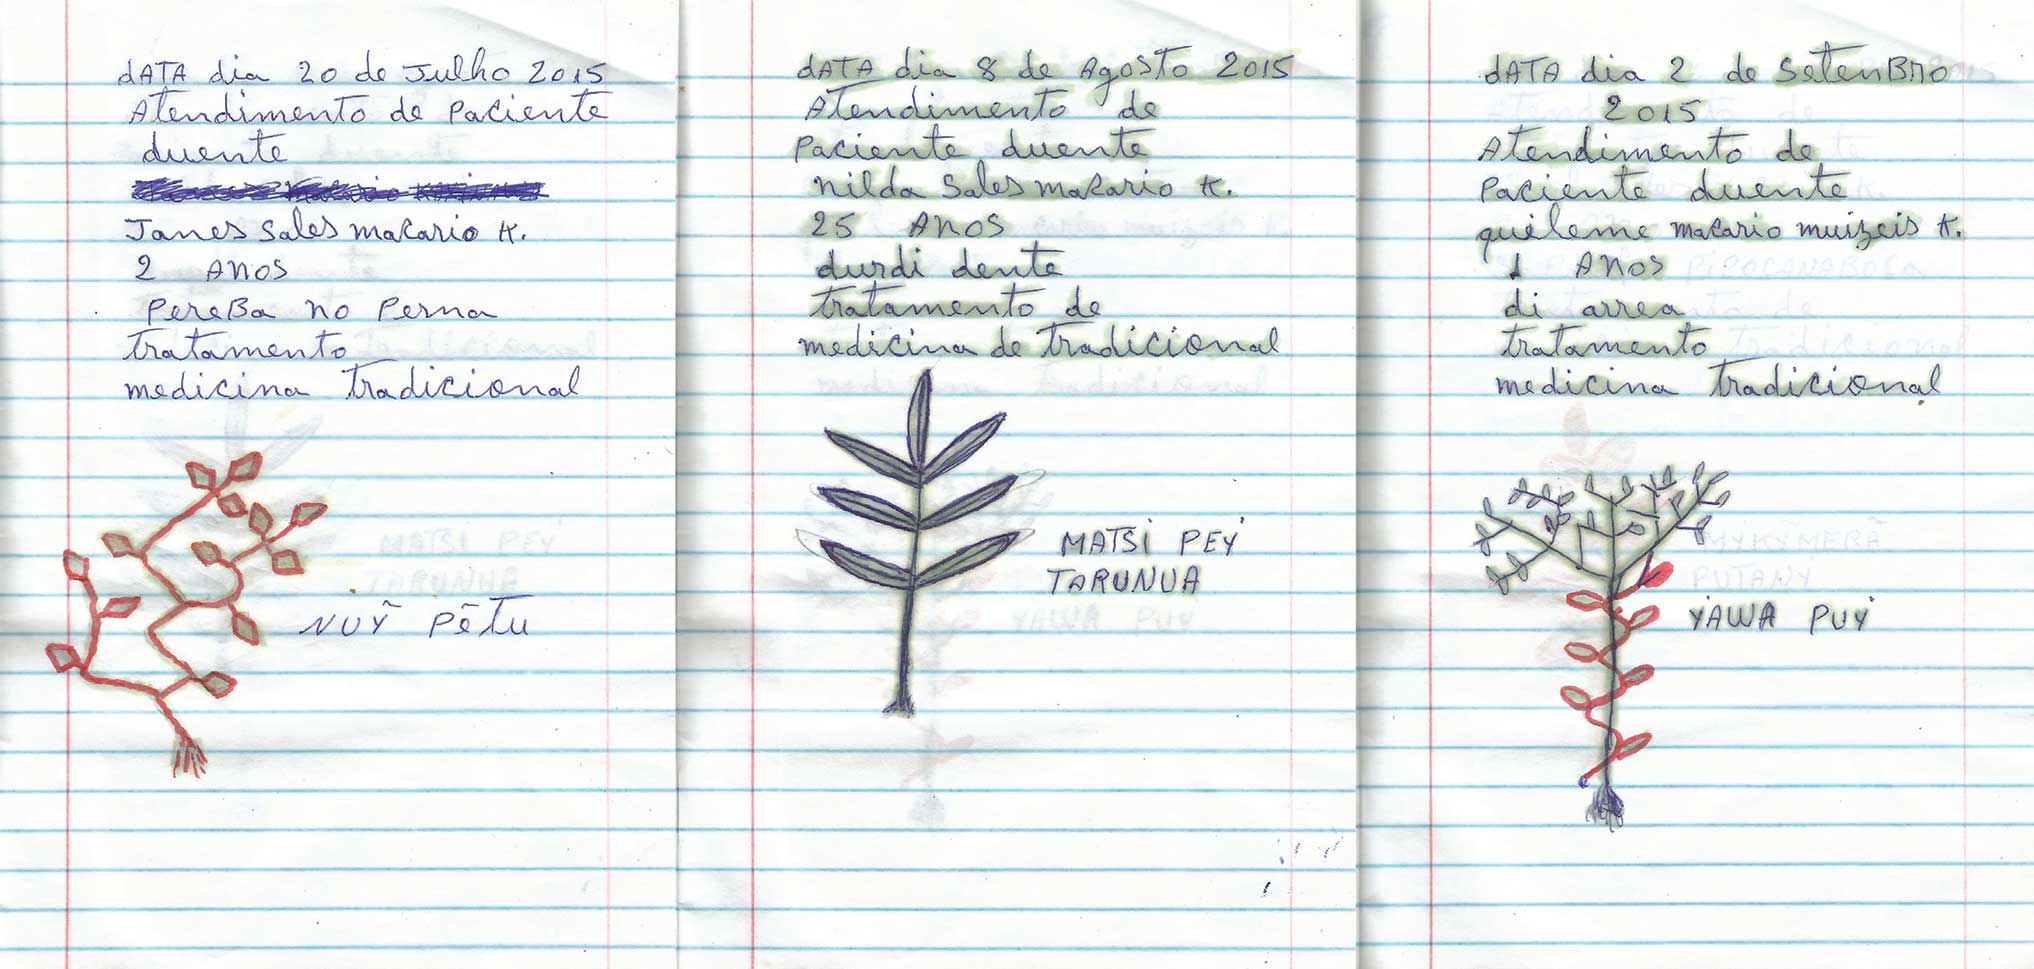 dATA dia 20 de Julho 2015
Atendimento de Paciente
duente
Janes Sales macario K.
2 ANOS
PereBa no Perna
tratamento
medicina tradicional
NUỸ PẼTU
dATA dia 8 de Agosto 2015
Atendimento de
Paciente duente
nilda Sales macario K.
25 ANOS
durdi dente
tratamento de
medicina de tradicional
MATSI PEY
TARUNUA
dATA dia 2 de SetenBro
2015
Atendimento de
Paciente duente
quileme macario muizeis K.
1 ANOS
di arrea
tratamento
medicina tradicional
YAWA PUY